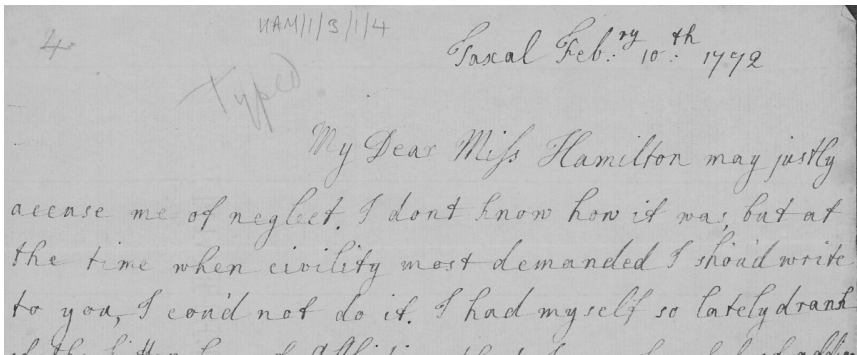 4
HAM/1/3/1/4
Taxal Feb:ry 10:th 1772
Typed
My Dear Miſs Hamilton may justly
accuse me of neglect. I dont know how it was, but at
the time when civility most demanded I shou'd write
to you, I cou'd not do it. I had myself so lately drank